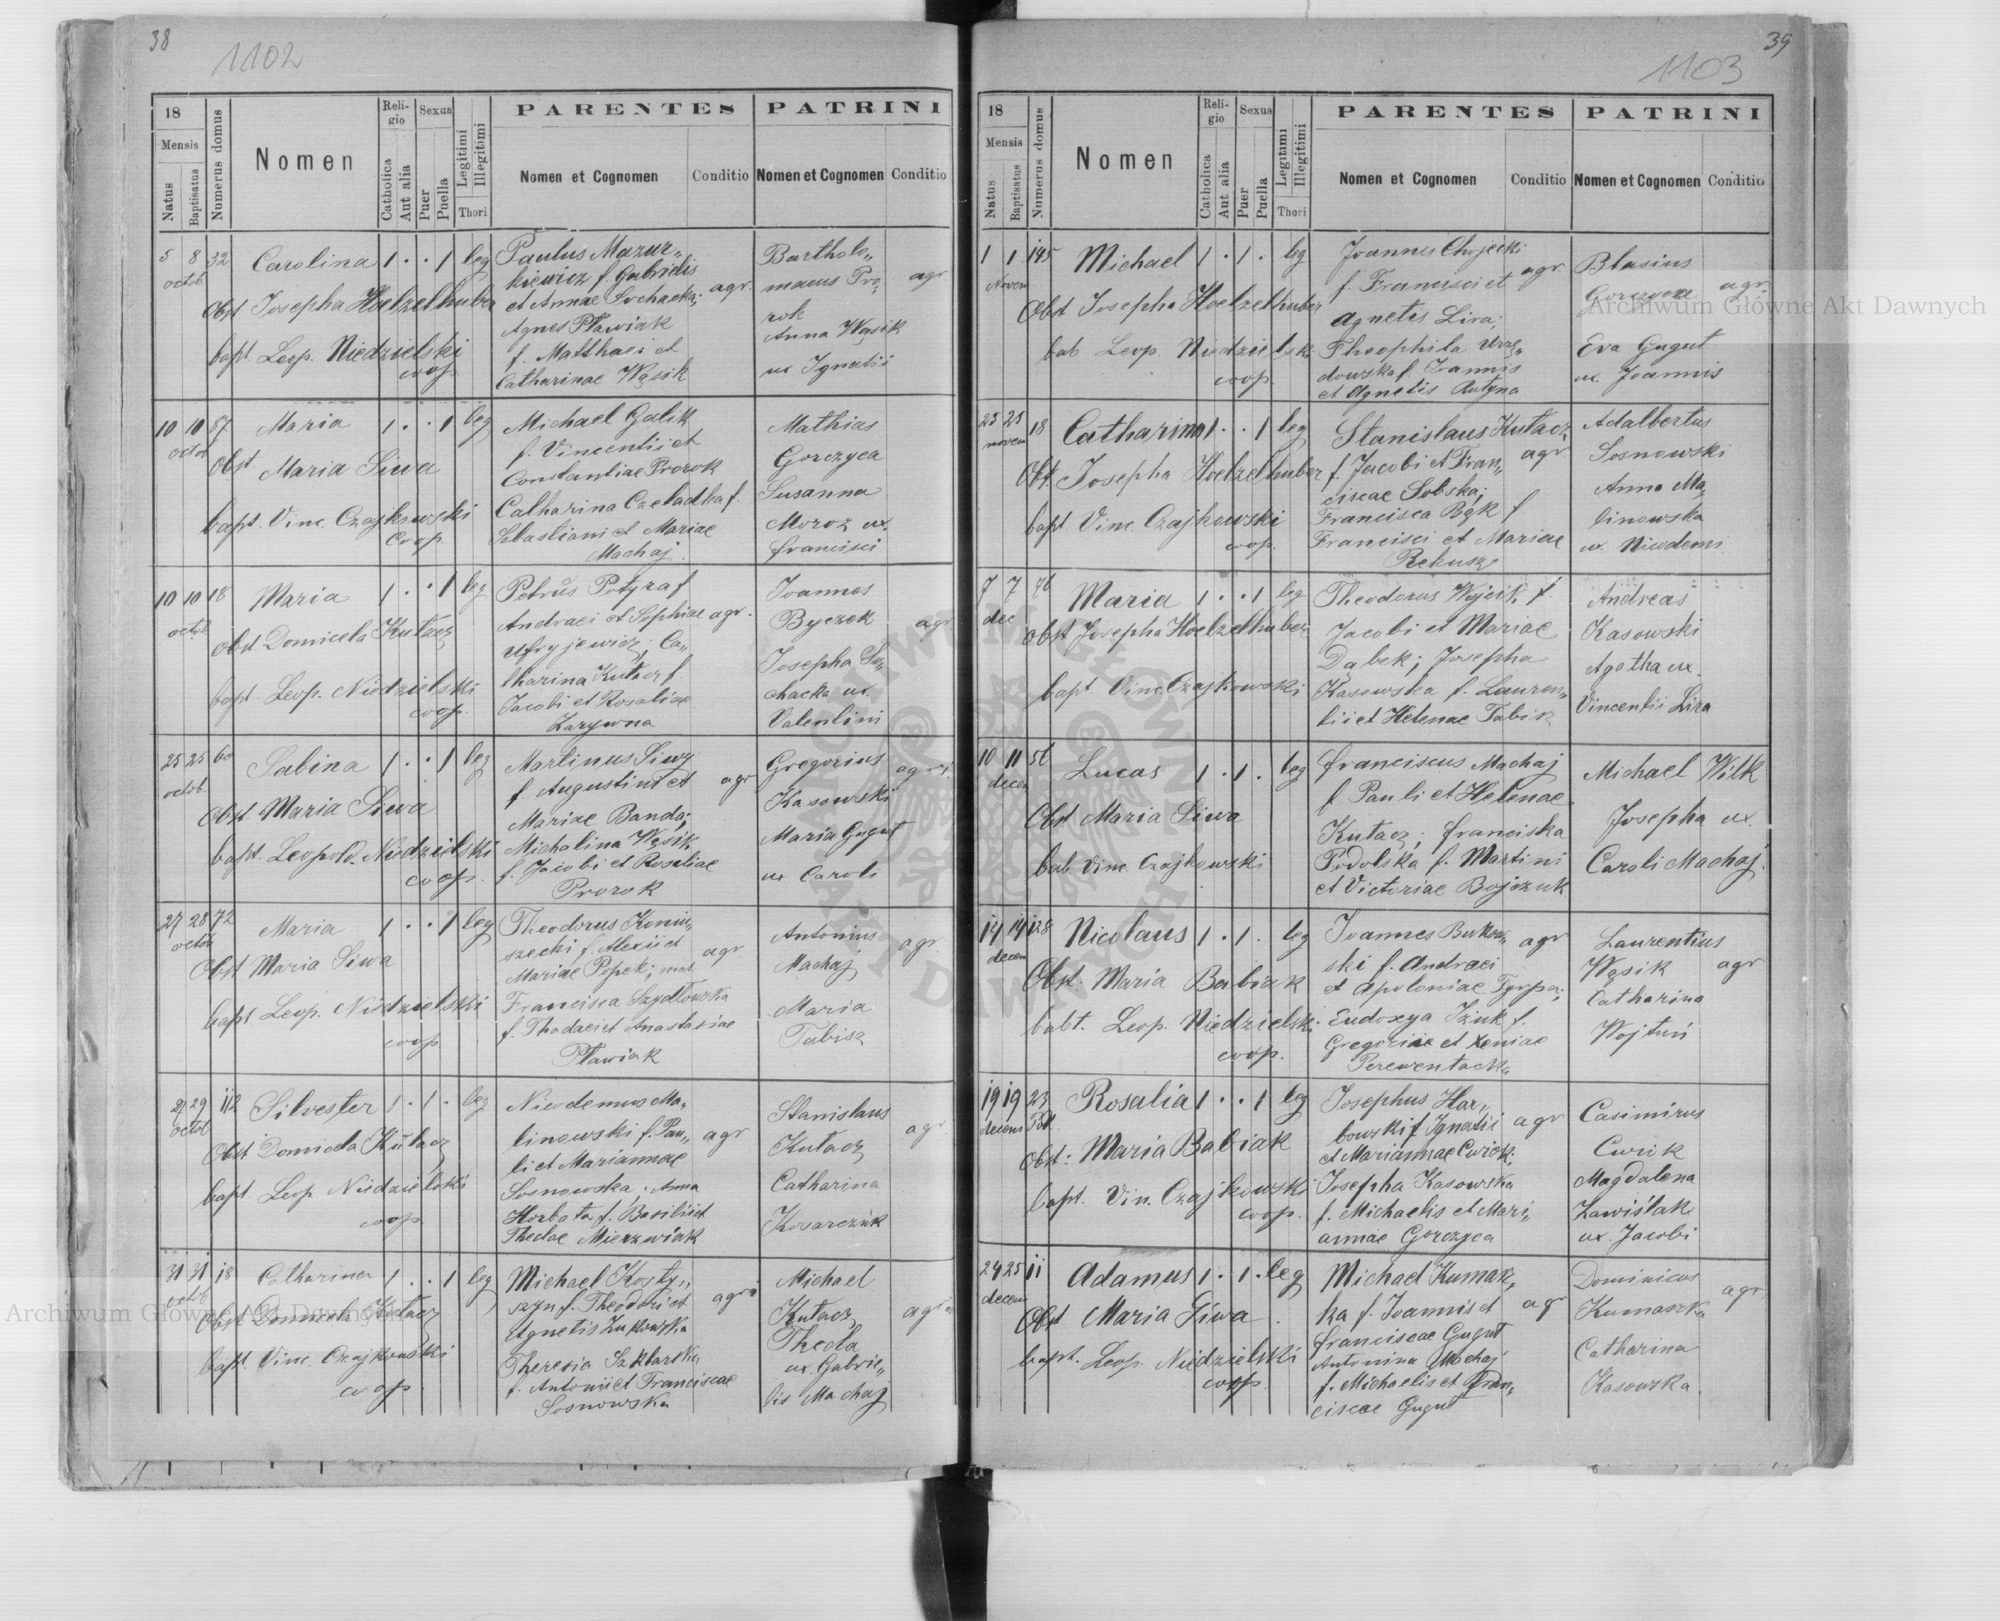 38
1102
18
Mensis
Natus
Baptisatus
Numerus domus
Nomen
Religio
Catholica
Aut alia
Sexus
Puer
Puella
Legitimi
Illegitimi
Thori
PARENTES
Nomen et Cognomen
Conditio
PATRINI
Nomen et Cognomen
Conditio
5 8 32 Carolina 1 . . 1 leg
octob
Obst Josepha Hoelzelhuber
bapt Leop. Niedzielski
coop
Paulus Mazur„
kiewicz f. Gabrielis
et Annae Sochacka;
Agnes Pławiak
f. Matthaei et
Catharinae Wąsik
agr.
Bartholo„
maeus Pro„
rok
Anna Wąsik
ux Ignatii
agr
10 10 87 Maria 1 . . 1 leg
octob
Obst Maria Siwa
bapt. Vinc. Czajkowski
coop
Michael Galik
f. Vincentii et
Constantiae Prorok
Catharina Czeladka f.
Sebastiani et Mariae
Machaj.
Mathias
Gorczyca
Susanna
Moroz ux.
Francisci
10 10 18 Maria 1 . . 1 leg
octob
Obst Domicela Kułacz
bapt. Leop. Niedzielski
coop.
Petrus Potyra f
Andraei et Sophiae agr.
Ca„
tharina Kułacz f.
Jacobi et Rosaliae
Zarywna
Joannes
Byczek
Josepha So„
chacka ux.
Valentini
agr
25 25 60 Sabina 1 . . 1 leg
octob.
Obst Maria Siwa
bapt. Leopold. Niedzielski
coop.
Martinus Siwy
f Augustini et
Mariae Banda;
Michalina Wąsik
f. Jacobi et Rosaliae
Prorok
agr
Gregorius
Kasowski
Maria Gugut
ux Caroli
27 28 72 Maria 1 . . 1 leg
octob
Obst Maria Siwa
bapt Leop. Niedzielski
coop
Theodorus Koniu„
szecki f. Alexii et
Mariae Popek;
Francisca Szydłowska
f. Thadaei et Anastasiae
Pławiak
agr
Antonius
Machaj
Maria
Tabisz
agr
29 29 112 Silvester 1 . 1 . leg
octob
Obst Domicela Kułacz
bapt Leop Niedzielski
coop
Nicodemus Ma„
linowski f. Pau„
li et Mariannae
Sosnowska; Anna
Horbata f. Basilii et
Theclae Mierzwiak
agr
Stanislaus
Kułacz
Catharina
Kosarczuk
agr.
31 31 18 Catharina 1 . . 1 leg
octb
Obst Domicela Kułacz
bapt. Vinc. Czajkowski
coop.
Michael Kosty„
szyn f. Theodori et
Agnetis Żukowska
Theresia Szklarska
f. Antonii et Franciscae
Sosnowska
agri
Michael
Kułacz
Thecla
ux. Gabrie„
lis Machaj
agri
39
1103
18
Mensis
Natus
Baptisatus
Numerus domus
Nomen
Religio
Catholica
Aut alia
Sexus
Puer
Puella
Legitimi
Illegitimi
Thori
PARENTES
Nomen et Cognomen
Conditio
PATRINI
Nomen et Cognomen
Conditio
1 1 145 Michael 1 . 1 . leg
Novem
Obst Josepha Hoelzelhuber
bab Leop. Niedzielski
coop.
Joannes Chojecki
f. Francisci et
Agnetis Lira;
Theophila
dowska f. Joannis
et Agnetis
agr
Blasius
Gorczyca
Eva Gugut
ux. Joannis
agr.
25 25 18 Catharina 1 . . 1 leg
novem
Obst. Josepha Hoelzelhuber
bapt Vinc. Czajkowski
coop.
Stanislaus Kułacz
f. Jacobi et Fran„
ciscae Sobska;
Francisca Bąk f
Francisci et Mariae
Rekusz
agr
Adalbertus
Sosnowski
Anna Ma„
linowska
ux. Nicodemi
7 7 76 Maria 1 . . 1 leg
dec
Obst Josepha Hoelzelhuber
bapt. Vinc. Czajkowski
Theodorus Wójcik f.
Jacobi et Mariae
Dąbek; Josepha
Kasowska f. Lauren„
tii et Helenae Tabisz
Andreas
Kasowski
Agatha ux.
Vincentii Lira
10 11 56 Lucas 1 . 1 . leg
decem
Obst Maria Siwa
bab Vinc. Czajkowski
Franciscus Machaj
f Pauli et Helenae
Kułacz; Franciska
Podolska f. Martini
et Victoriae Bojczuk
Michael Wilk
Josepha ux.
Caroli Machaj.
14 14 128 Nicolaus 1 . 1 . leg
decem
Obst. Maria Babiak
babt. Leop. Niedzielski
coop.
Joannes Burkow„
ski f. Andraei
et Apoloniae Tyrpa;
Eudoxya Iżuk f.
Gregorii et Xeniae
agr
Laurentius
Wąsik
Catharina
Wojtuń
agr
19 19 23 Rosalia 1 . . 1 leg
decem
Obst: Maria Babiak
bapt. Vin. Czajkowski
coop.
Josephus Har„
bowski f Ignatii
et Mariannae Cwiek;
Josepha Kasowska
f. Michaelis et Mari„
annae Gorczyca
agr
Casimirus
Cwik
Magdalena
Zawiślak
ux. Jacobi
24 25 11 Adamus 1 . 1 . leg
decem
Obst Maria Siwa
bapt. Leop. Niedzielski
coop.
Michael Kumak„
ka f. Joannis et
Franciscae Gugut
Antonina Machaj
f. Michaelis et Fran„
ciscae Gugut
agr
Dominicus
Kumaszka
Catharina
Kasowska.
agr
Archiwum Główne Akt Dawnych
Archiwum Główne Akt Dawnych
ARCHIWUM GŁÓWNE
AKT DAWNYCH